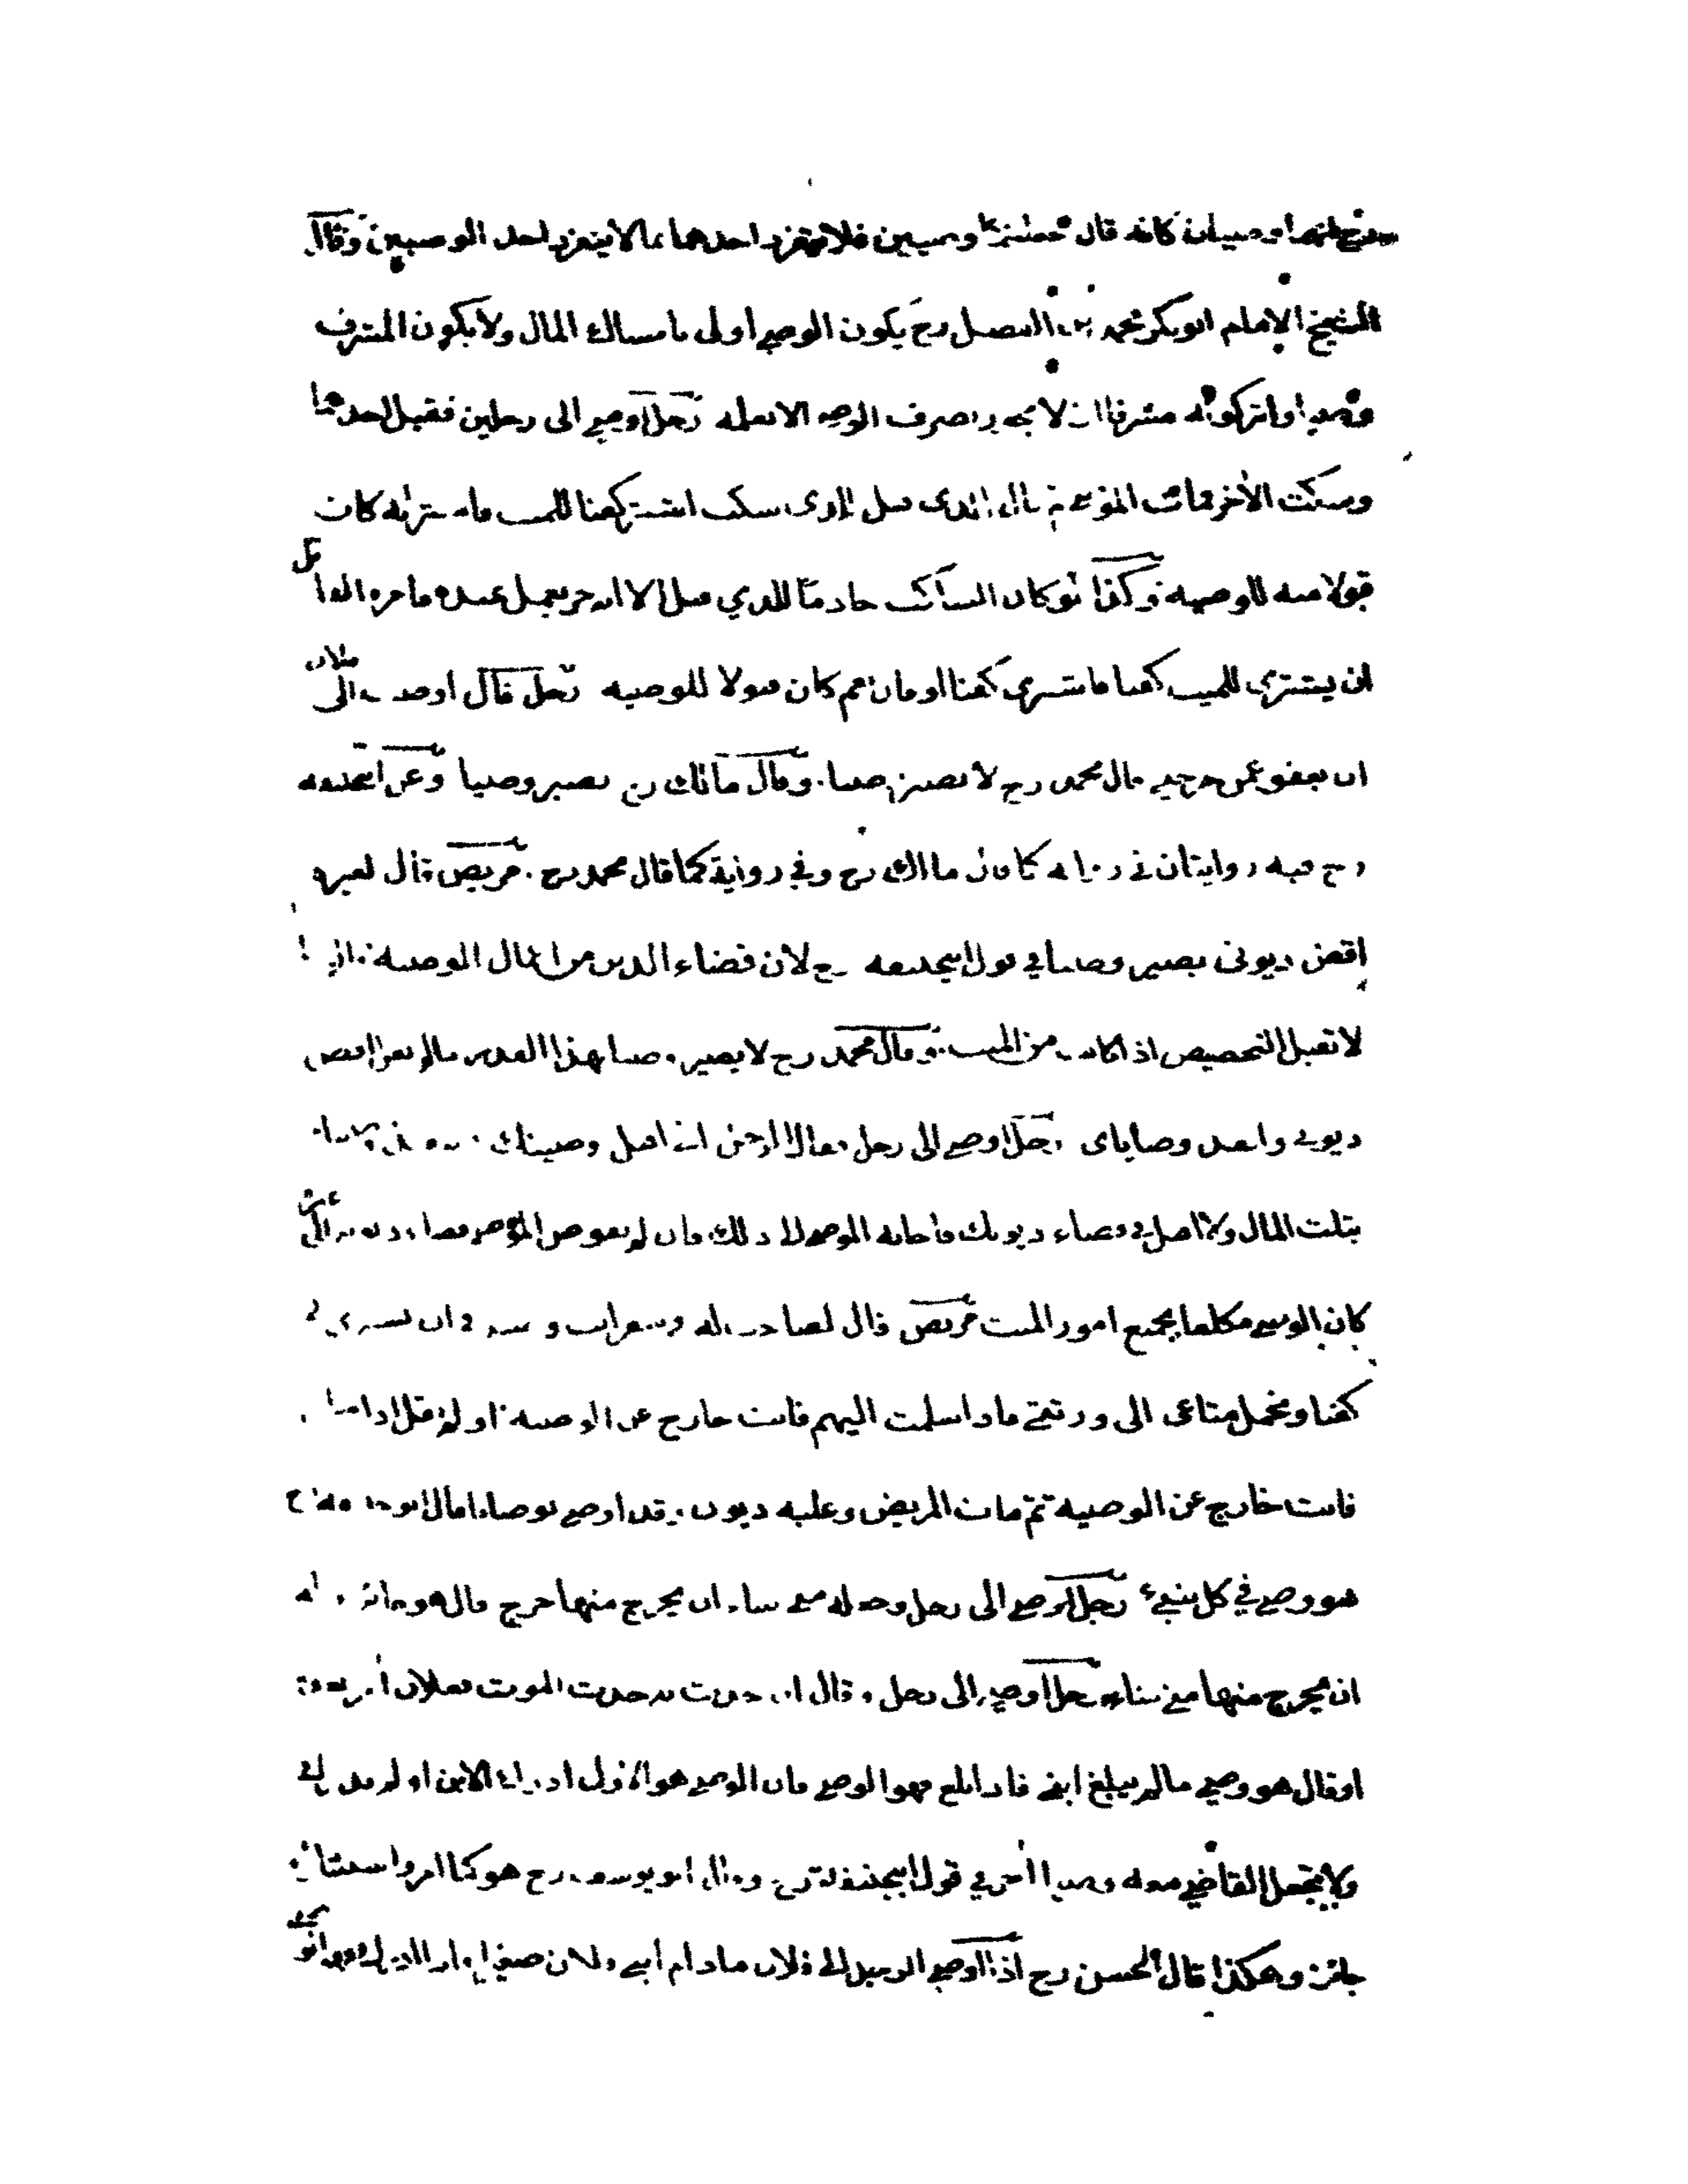 وصيان كانه قال جعلتكما وصيين فلا ينفرد احدهما بما لا ينفرد احد الوصيين وقال
الشيخ الامام ابو بكر محمد بن الفضل رح يكون الوصي اولى بامساك المال ولا يكون المشرف
وصيا واثر كونه مشرفا ان لا يجوز تصرف الوصي الا بعلمه رجل اوصى الى رجلين فقبل احدهما
وسكت الآخر فمات الموصي ثم قال الذي قبل للذي سكت اشتر كفنا للميت فاشتراه كان
قبولا منه للوصية وكذا لو كان الساكت خادما للذي قبل الا انه حر يعمل عنده فامره القابل
ان يشتري للميت كفنا فاشترى كفنا او قال نعم كان قبولا للوصية رجل قال اوصيت الى فلان
ان يعفو عمن جرحني قال محمد رح لا يصير وصيا وقال مالك رح يصير وصيا وعن ابيحنيفه
رح فيه روايتان في رواية كما قال مالك رح وفي رواية كما قال محمد رح مريض قال لغيره
اقض ديوني يصير وصيا في قول ابيحنيفه رح لان قضاء الدين من اعمال الوصية
لا تقبل التخصيص اذا كانت من الميت وقال محمد رح لا يصير وصيا بهذا القدر ما لم يقل اقض
ديوني وانفذ وصاياي رجل اوصى الى رجل فقال الرجل اني اقبل وصيتك
بثلث المال ولا اقبل في قضاء ديونك فاجابه الموصي الى ذلك فان لم يفوض الموصي قضاء ديونه الى غيره
كان الوصي مكلفا بجميع امور الميت مريض قال لصاحب له وان تشتري لي
كفنا وتحمل متاعي الى ورثتي فاذا سلمت اليهم فانت خارج عن الوصية او لم يقل اذا
فانت خارج عن الوصية ثم مات المريض وعليه ديون وقد اوصى بوصايا قال ابو رح
هو وصي في كل شيء رجل اوصى الى رجل وجعل له متى شاء ان يخرج منها خرج قال هو جائز وله
ان يخرج منها متى شاء رجل اوصى الى رجل وقال ان حدث به حدث الموت ففلان
او قال هو وصيي ما لم يبلغ ابني فاذا بلغ فهو الوصي فان الوصي هو الاول ادرك الابن او لم يدرك
ولا يجعل القاضي معه وصيا آخر في قول ابيحنيفة رح وقال ابو يوسف رح هو كما امر
جائز وهكذا قال الحسن رح اذا اوصى الرجل الى فلان مادام ابني فلان صغيرا